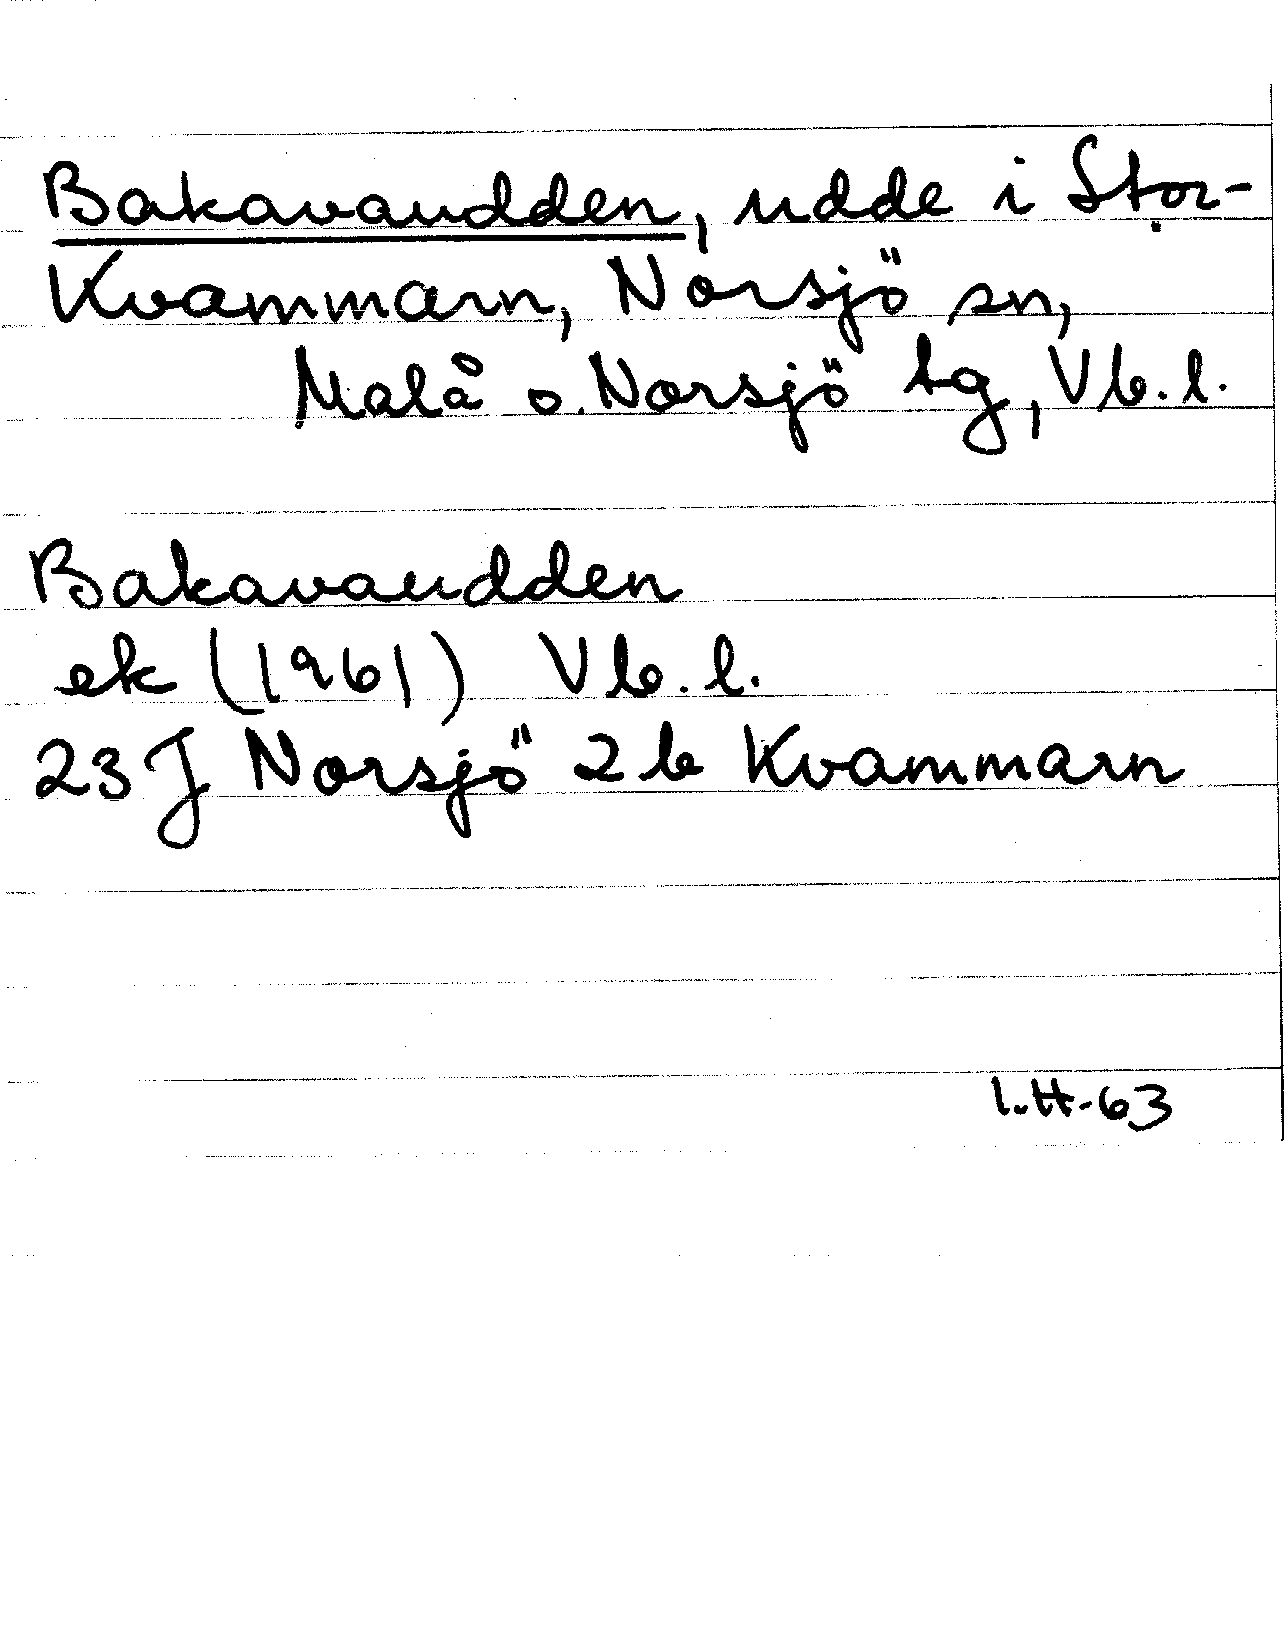 Bakavaudden, udde i Stor-
Kvammarn, Norsjö sn,
Malå o. Norsjö tg, Vb. l.
Bakavaudden
ek (1961) Vb. l.
23 J Norsjö 2 b Kvammarn
I.H-63